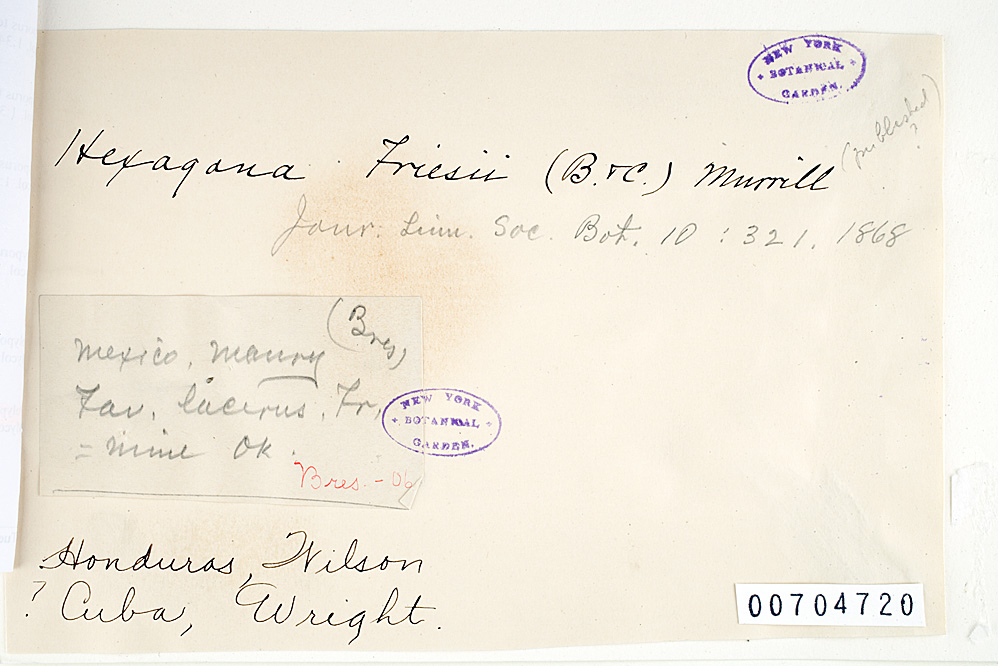 NEW YORK
BOTANICAL
GARDEN.
(published)
?
Hexagona Friesii (B.&C.) Murrill
Jour. Linn. Soc. Bot. 10 : 321. 1868
(Bres)
Mexico, Maury
Fav. lacerus, Fr,
= mine Ok.
Bres. - 06
NEW YORK
BOTANICAL
GARDEN.
Honduras, Wilson
? Cuba, Wright.
00704720